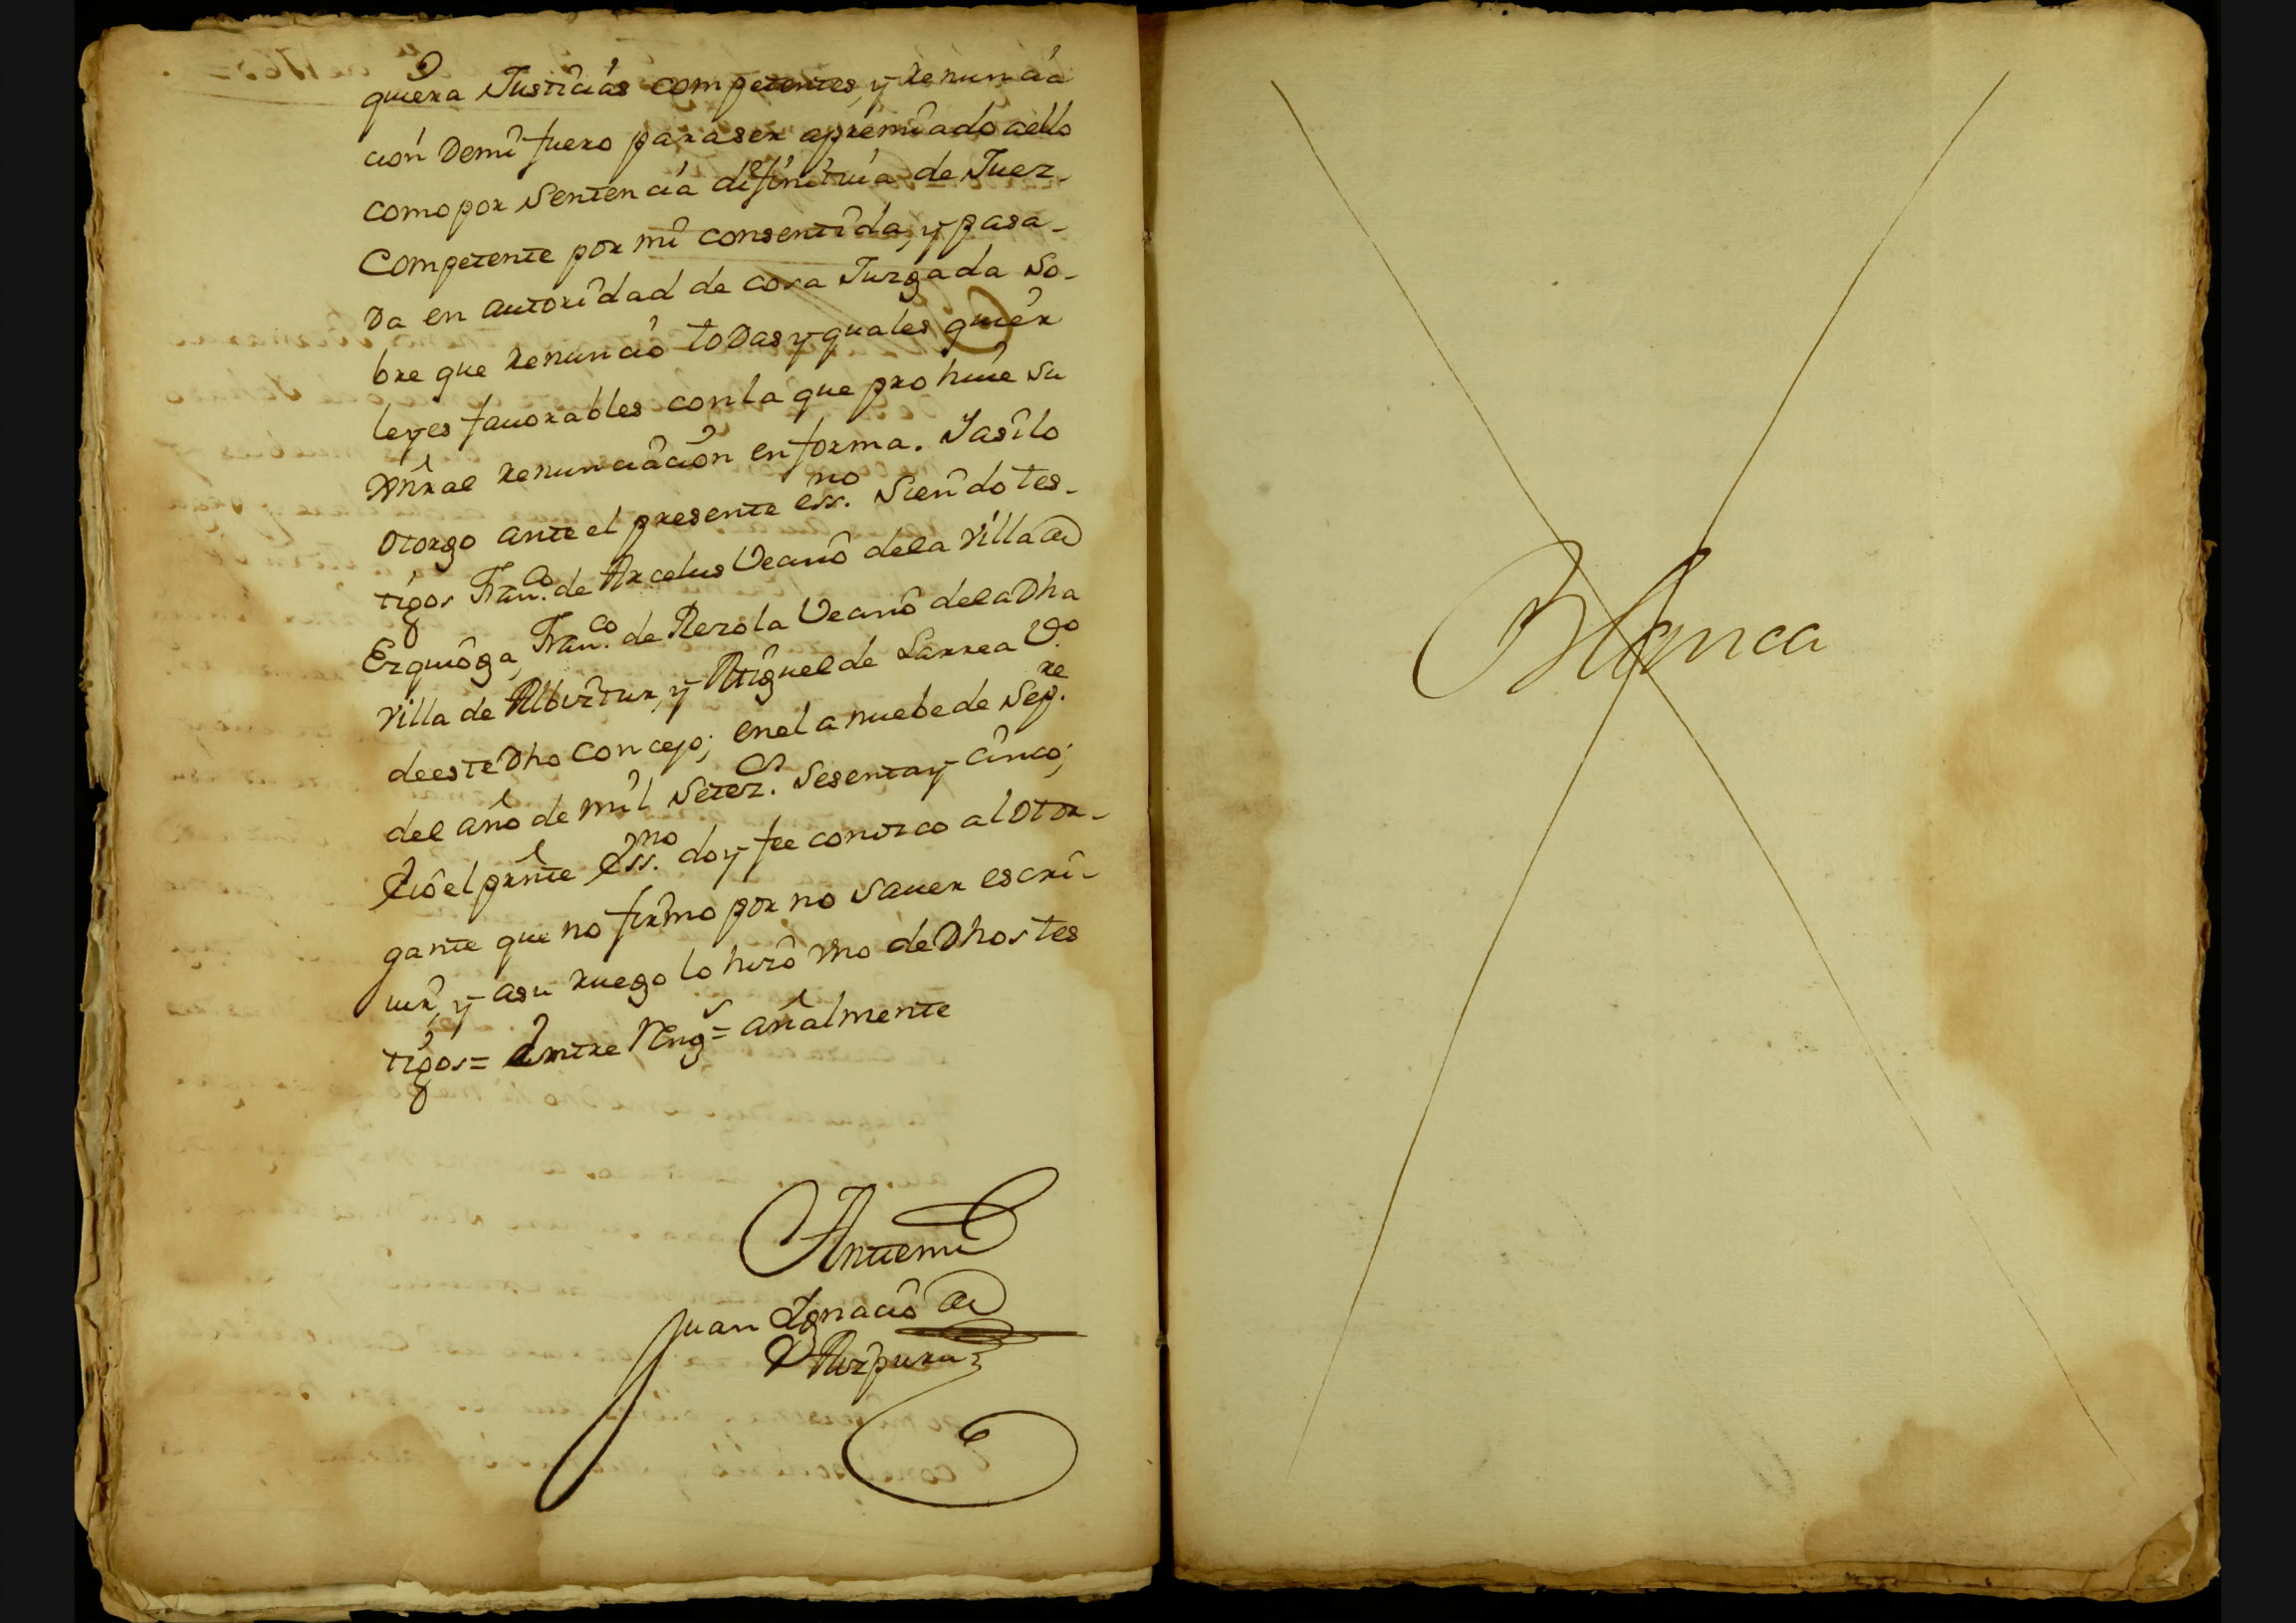 quiera Justicias competentes, y renuncia
cion demi fuero paraser apremiado aello
comopor Sentencia difinitiua de Juez
Competente por mi consentida, y pasa-
da en autoridad de cosa Juzgada so-
bre que renunció todas y quales quier
leyes fauorables conla que prohiue su
gñral renunciación enforma. Jasilo
Otorgo ante el presente ess.no Siendo tes-
tigos Fran.co de Arcelus Vecino dela villa de
Ezquioga, Fran.co de Rezola Vecino dela Dha
Villa de Albiztur, y Miguel de Larrea V.o
deeste Dho Concejo; enel a nuebe de Sep.re
del año de mil Setez.s Sesentay cinco;
Eio el prnte Ess.no doy fee conozco al Otor-
gante que no firmo por no Sauer escri-
uir, y asu ruego lo hizo Vno de Dhos tes
tigos= Entre Reng.s= añalmente
Antemi
Juan Ignacio de
Aizpuru
Blanca